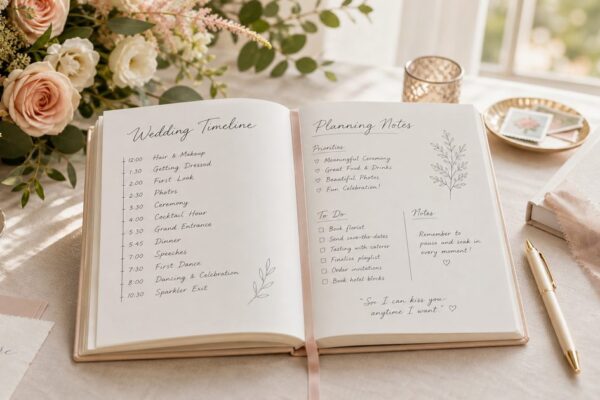 Wedding Timeline
12:00 Hair & Makeup
1:30 Getting Dressed
2:00 First Look
2:30 Photos
3:30 Ceremony
4:00 Cocktail Hour
5:30 Grand Entrance
5:45 Dinner
7:00 Speeches
7:30 First Dance
8:00 Dancing & Celebration
10:30 Sparkler Exit
Planning Notes
Priorities
Meaningful Ceremony
Great Food & Drinks
Beautiful Photos
Fun Celebration!
To Do
Book florist
Send save-the-dates
Tasting with caterer
Finalize playlist
Order invitations
Book hotel blocks
Notes
Remember to
pause and soak in
every moment!
"So I can kiss you
anytime I want"